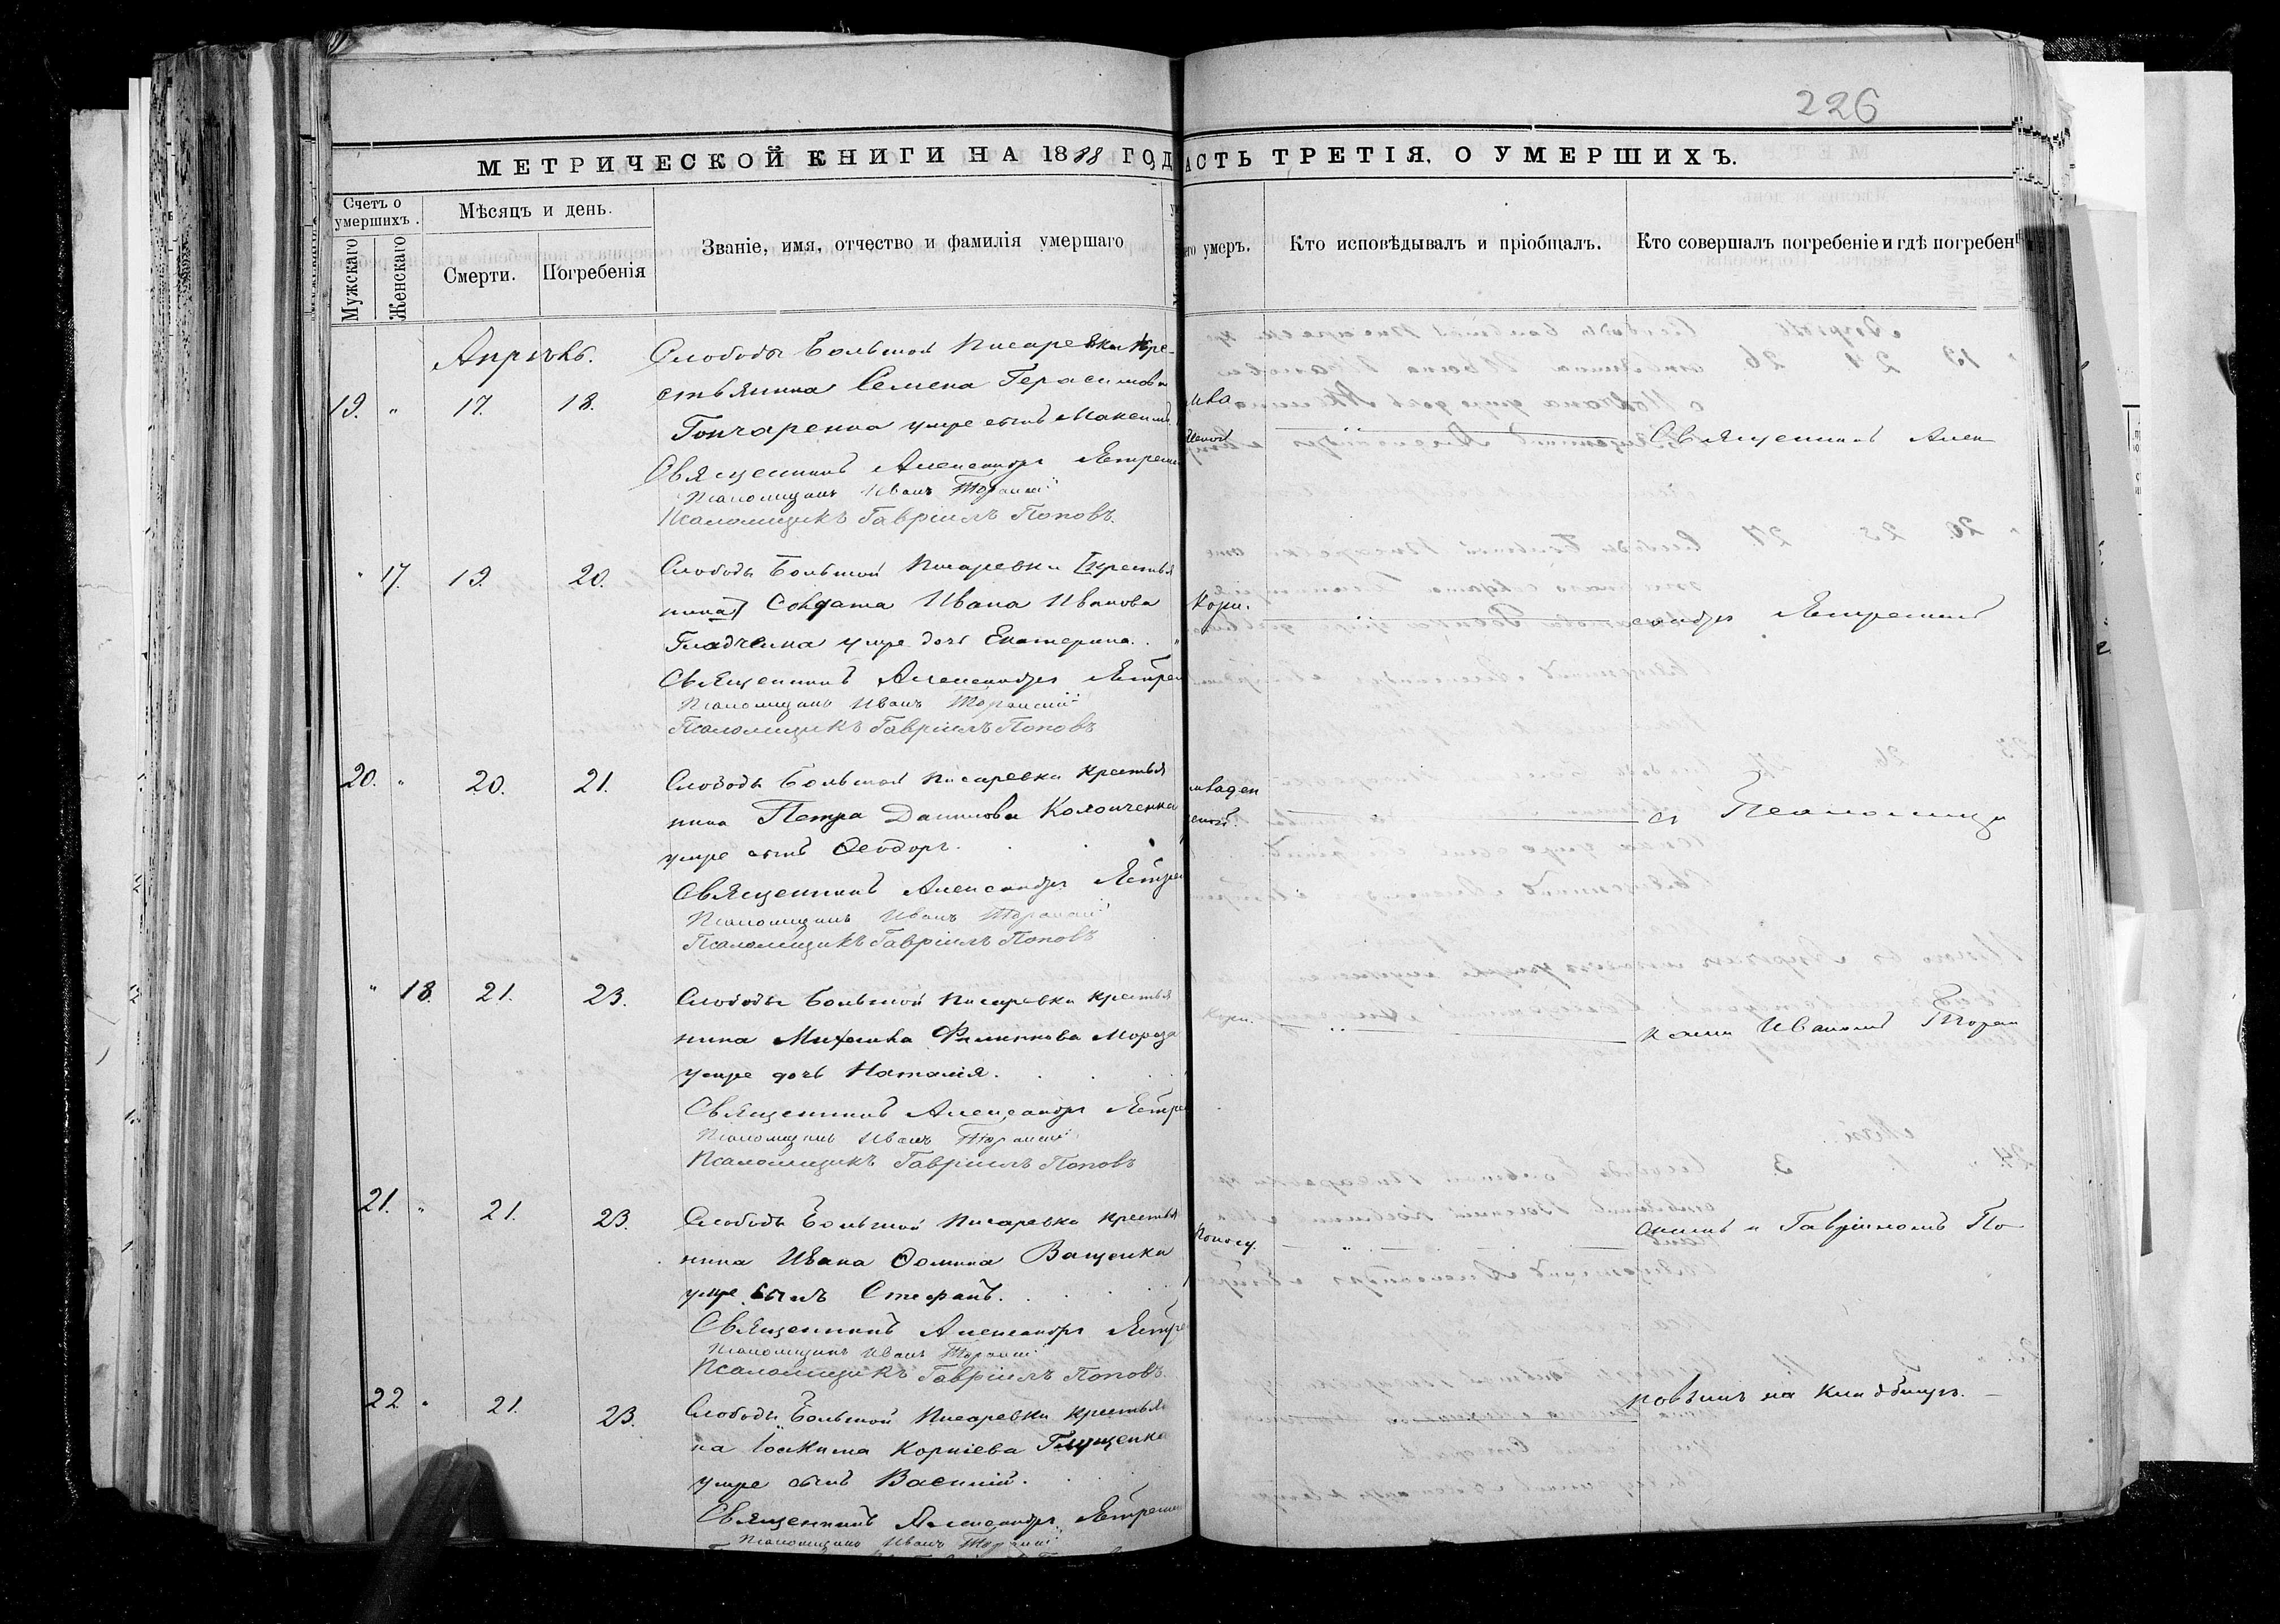 226
МЕТРИЧЕСКОЙ КНИГИ НА 1888 ГОД
АСТЬ ТРЕТІЯ, О УМЕРШИХЪ.
Счетъ о умершихъ.
Мужскаго
Женскаго
Мѣсяцъ и день.
Смерти.
Погребенія
Званіе, имя, отчество и фамилія умершаго
его умеръ.
Кто исповѣдывалъ и пріобщалъ.
Кто совершалъ погребеніе и гдѣ погребен
Апрѣль.
19. " 17. 18.
Слободы Большой Писаревки кре-
стьянина Семена Герасимова
Гончаренка умре сынъ Максимъ
Священникъ Александръ Ястрем
Псаломщикъ Иванъ Торанскій
Псаломщикъ Гавріилъ Поповъ.
Священникъ Алек-
" 17. 19. 20.
Слободы Большой Писаревки [крестья
нина] Солдата Ивана Иванова
Гладчена умре дочь Екатерина.
Священникъ Александръ Ястрем
Псаломщикъ Иванъ Торанскій
Псаломщикъ Гавріилъ Поповъ
Кори.
сандръ Ястремск
20. " 20. 21.
Слободы Большой Писаревки крестья
нина Петра Данилова
умре сынъ Ѳеодоръ.
Священникъ Александръ Ястрем
Псаломщикъ Иванъ Торанскій
Псаломщикъ Гавріилъ Поповъ
младен
ской.
съ Псаломщи
" 18. 21. 23.
Слободы Большой Писаревки крестья
нина Михаила Филиппова Мороза
умре дочь Наталія.
Священникъ Александръ Ястрем
Псаломщикъ Иванъ Торанскій
Псаломщикъ Гавріилъ Поповъ
Кори.
ками Иваномъ Торан
21. " 21. 23.
Слободы Большой Писаревки крестья
нина Ивана Ѳомина Ващенки
умре сынъ Стефанъ.
Священникъ Александръ Ястре
Псаломщикъ Иванъ Торанскій
Псаломщикъ Гавріилъ Поповъ.
Поносу.
скимъ и Гавріиломъ По-
22. " 21. 23.
Слободы Большой Писаревки крестьяни
на Іоакима Корніева Глущенка
умре сынъ Василій.
Священникъ Александръ Ястрем
Псаломщикъ Иванъ Торанскій
повымъ на кладбищѣ.